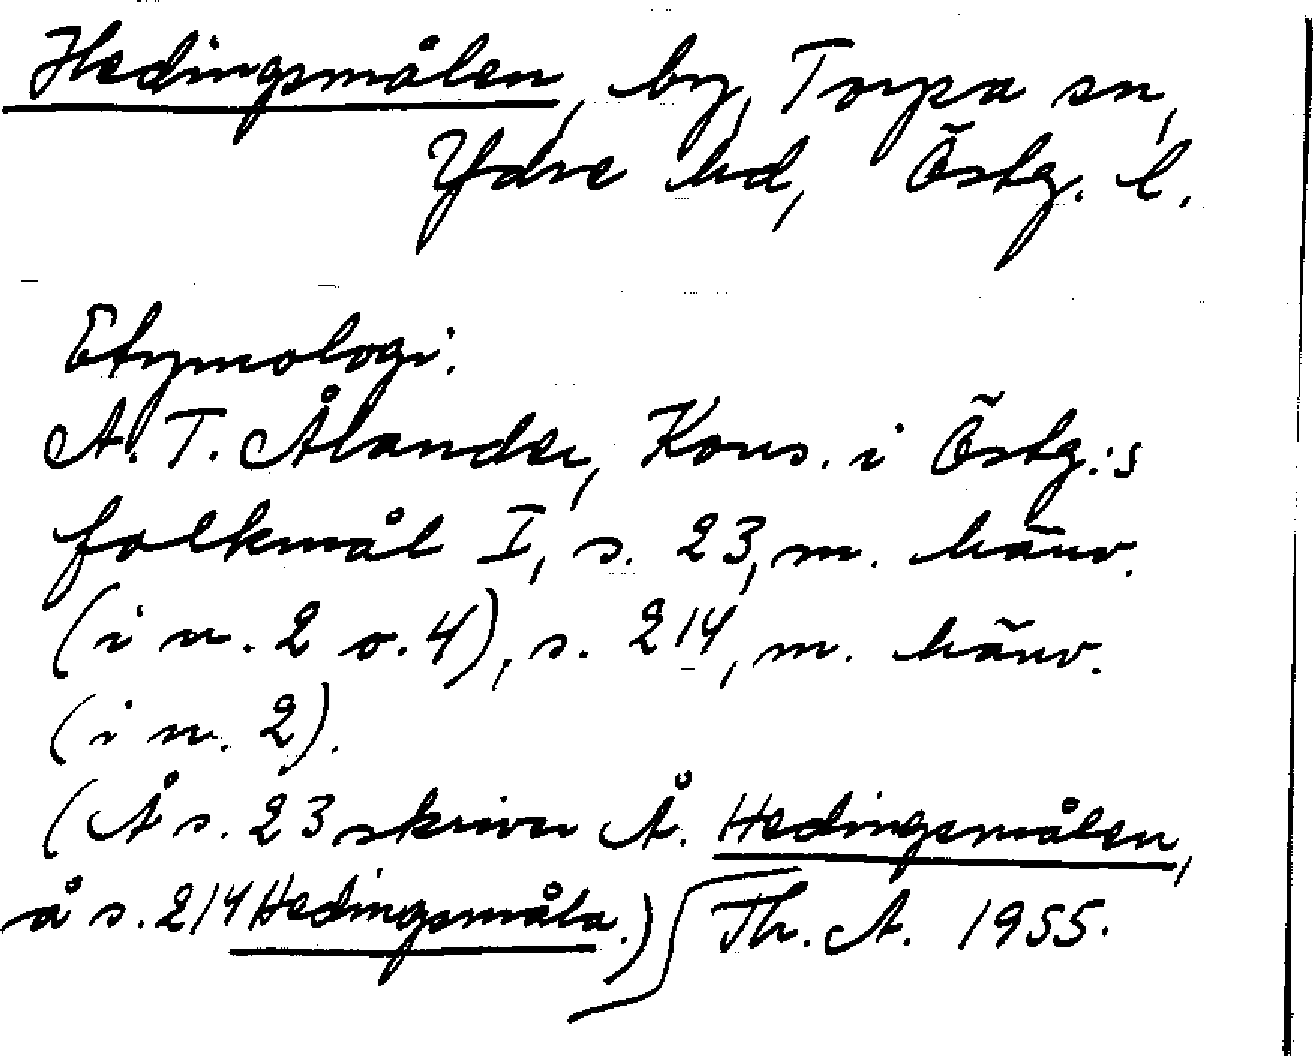 Hedingsmålen, by, Torpa sn,
Ydre hd, Östg. l.
Etymologi:
A. T. Ålander, Kons. i Östg.:s
folkmål I, s. 23, m. hänv.
(i n. 2 o. 4), s. 214, m. hänv.
(i n. 2).
(Å s. 23 skriver Å. Hedingsmålen,
å s. 214 Hedingsmåla.) Th. A. 1955.